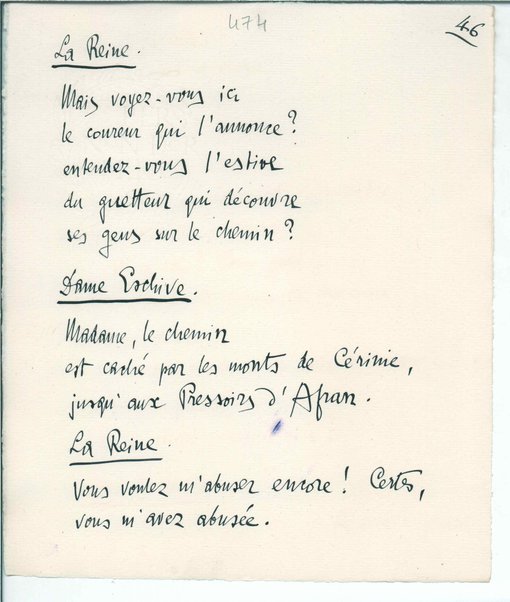 474
46
La Reine.
Mais voyez-vous ici
le coureur qui l'annonce?
entendez-vous l'estive
du guetteur qui découvre
ses gens sur le chemin?
Dame Eschive.
Madame, le chemin
est caché par les monts de Cérinie,
jusqu'aux Pressoirs d'Afran.
La Reine.
Vous voulez m'abuser encore! Certes,
vous m'avez abusée.